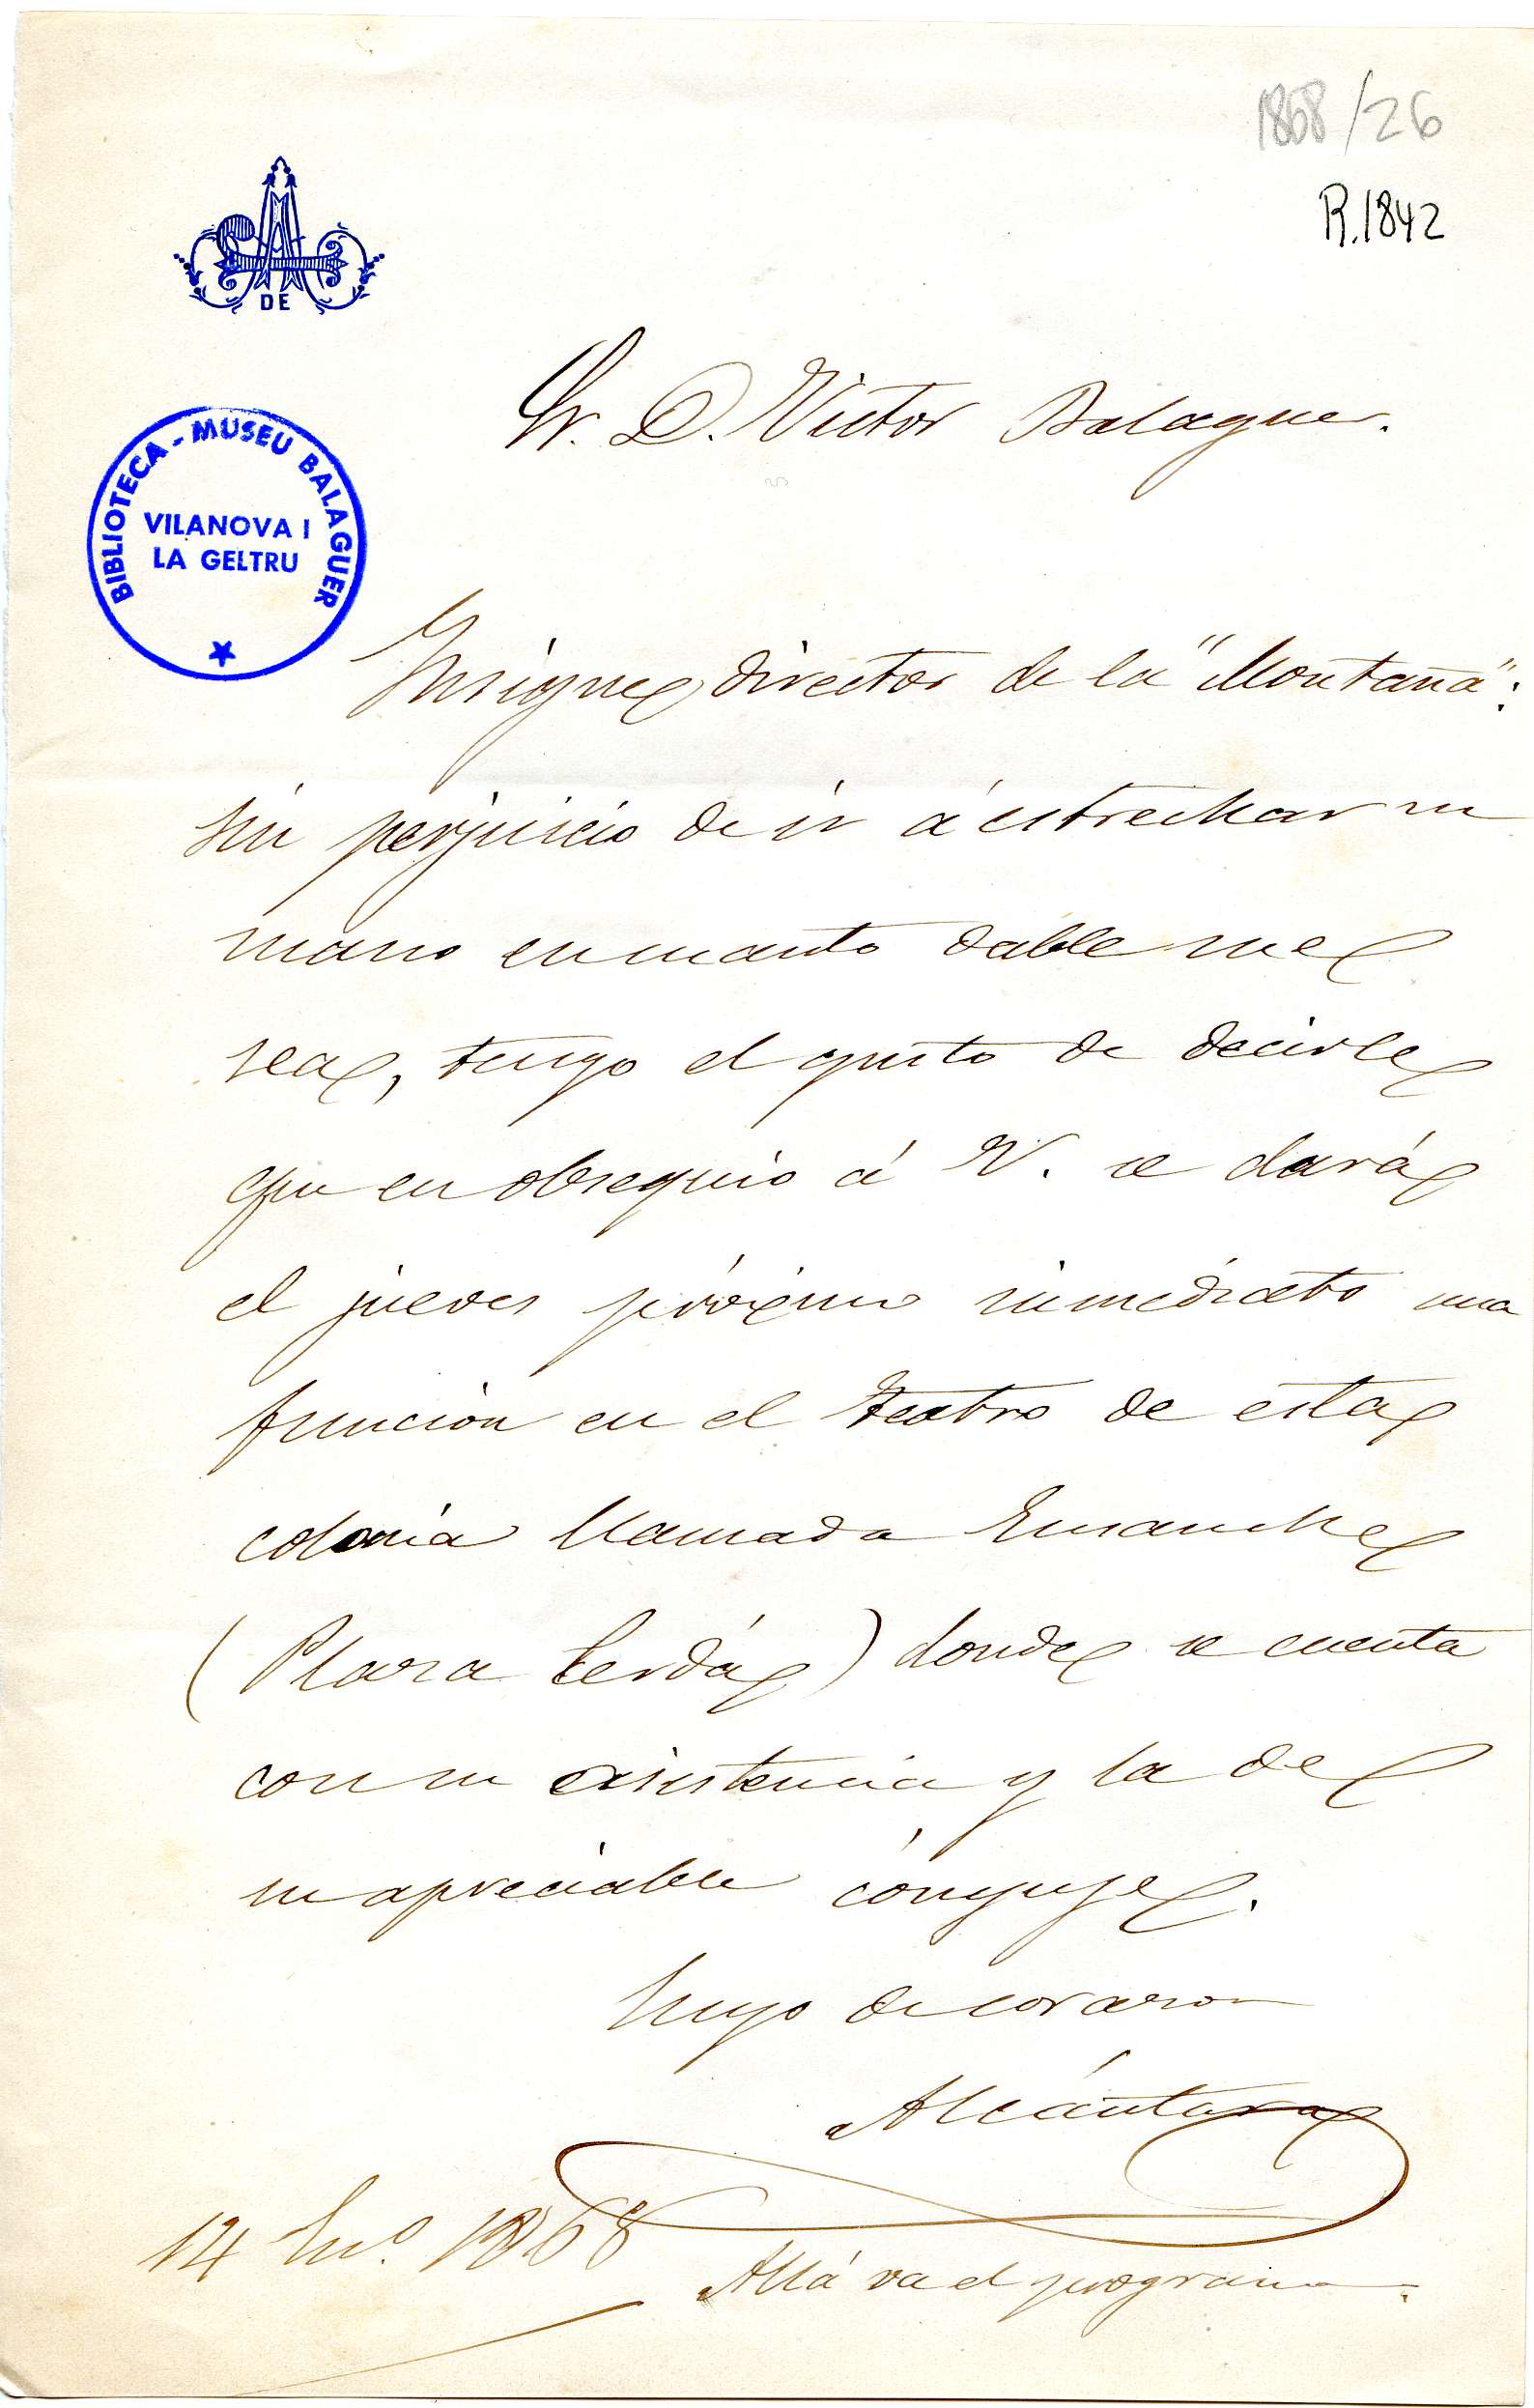 1868/26
R.1842
DE
BIBLIOTECA - MUSEU BALAGUER
VILANOVA I
LA GELTRU
Sr. D. Victor Balaguer.
Insigne director de la "Montaña":
sin perjuicio de ir á estrechar su
mano en cuanto dable me
sea, tengo el gusto de decirle
que en obsequio á V. se dará
el jueves próximo inmediato una
función en el teatro de esta
colonia llamada Ensanche
(Plaza Cerdá) donde se cuenta
con su asistencia y la de
su apreciable cónyuge.
Suyo de corazon
Alcántara
14 En.º 1868
Allá va el programa.